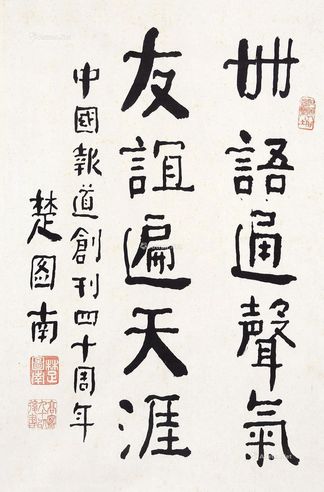 世語通聲氣
友誼遍天涯
中國報道創刊四十周年
楚圖南